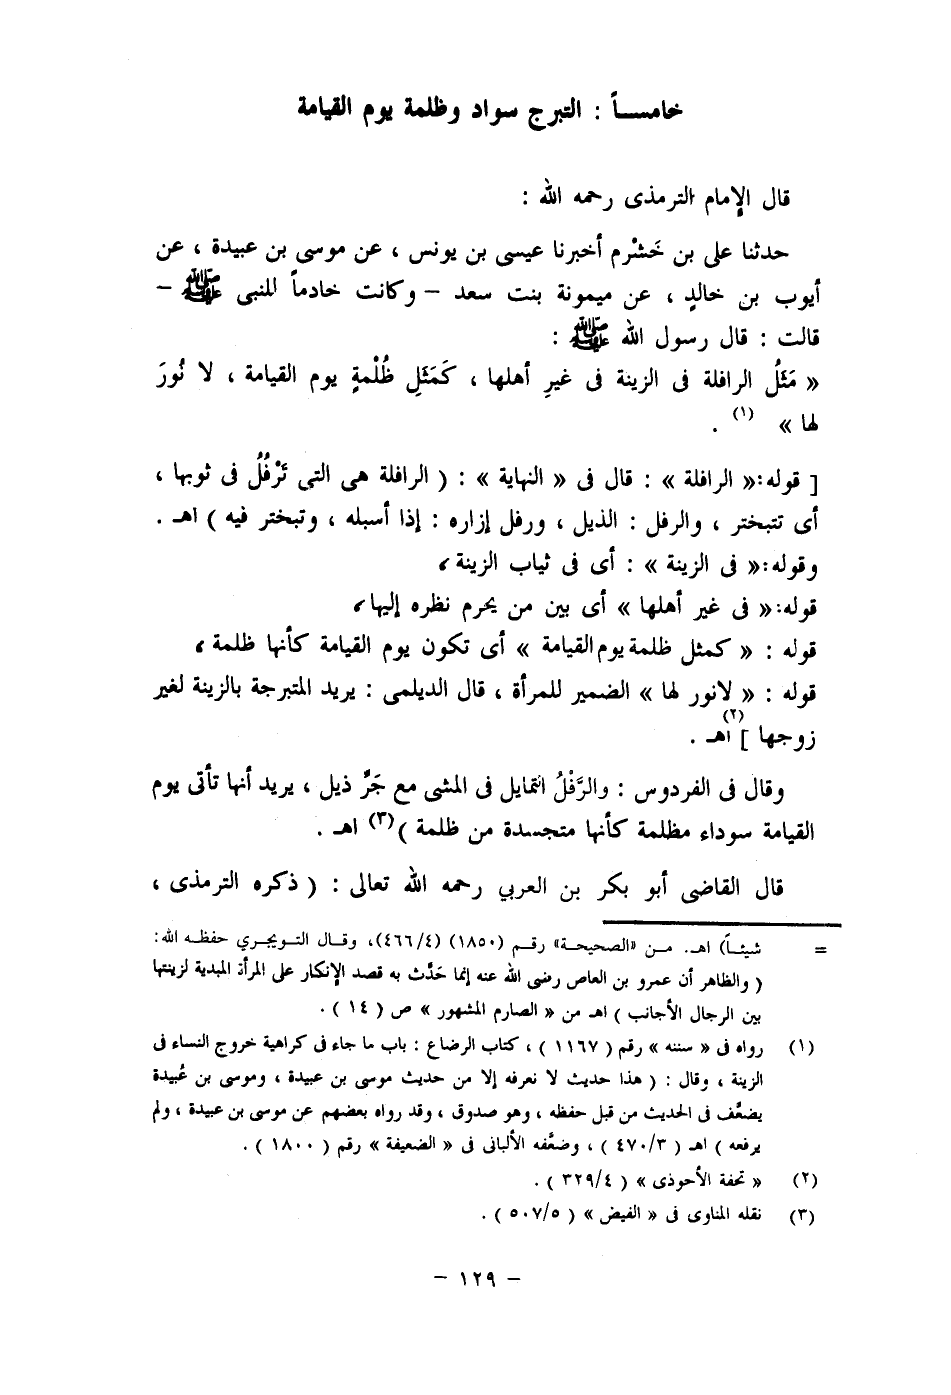 خامســاً : التبرج سواد وظلمة يوم القيامة
قال الإمام الترمذى رحمه الله :
حدثنا على بن خَشْرم أخبرنا عيسى بن يونس ، عن موسى بن عبيدة ، عن
أيوب بن خالدٍ ، عن ميمونة بنت سعد – وكانت خادماً للنبى ﷺ –
قالت : قال رسول الله ﷺ :
« مَثَلُ الرافلة فى الزينة فى غيرِ أهلها ، كَمَثَلِ ظُلْمةٍ يوم القيامة ، لا نُورَ
لها » (١) .
[ قوله:« الرافلة » : قال فى « النهاية » : ( الرافلة هى التى تَرْفُلُ فى ثوبها ،
أى تتبختر ، والرفل : الذيل ، ورفل إزاره : إذا أسبله ، وتبختر فيه ) اهـ .
وقوله:« فى الزينة » : أى فى ثياب الزينة ،
قوله:« فى غير أهلها » أى بين من يحرم نظره إليها ،
قوله : « كمثل ظلمة يوم القيامة » أى تكون يوم القيامة كأنها ظلمة ،
قوله : « لانور لها » الضمير للمرأة ، قال الديلمى : يريد المتبرجة بالزينة لغير
زوجها ] (٢) اهـ .
وقال فى الفردوس : والرَّفْلُ التمايل فى المشى مع جَرِّ ذيل ، يريد أنها تأتى يوم
القيامة سوداء مظلمة كأنها متجسدة من ظلمة )(٣) اهـ .
قال القاضى أبو بكر بن العربي رحمه الله تعالى : ( ذكره الترمذى ،
= شيئاً) اهـ. من «الصحيحة» رقم (١٨٥٠) (٤٦٦/٤)، وقال التويجري حفظه الله:
( والظاهر أن عمرو بن العاص رضى الله عنه إنما حَدَّث به قصد الإنكار على المرأة المبدية لزينتها
بين الرجال الأجانب ) اهـ من « الصارم المشهور » ص ( ١٤ ) .
(١) رواه فى « سننه » رقم ( ١١٦٧ ) ، كتاب الرضاع : باب ما جاء فى كراهية خروج النساء فى
الزينة ، وقال : ( هذا حديث لا نعرفه إلا من حديث موسى بن عبيدة ، وموسى بن عُبيدة
يضعَّف فى الحديث من قبل حفظه ، وهو صدوق ، وقد رواه بعضهم عن موسى بن عبيدة ، ولم
يرفعه ) اهـ ( ٤٧٠/٣ ) ، وضعَّفه الألبانى فى « الضعيفة » رقم ( ١٨٠٠ ) .
(٢) « تحفة الأحوذى » ( ٣٢٩/٤ ) .
(٣) نقله المناوى فى « الفيض » ( ٥٠٧/٥ ) .
– ١٢٩ –